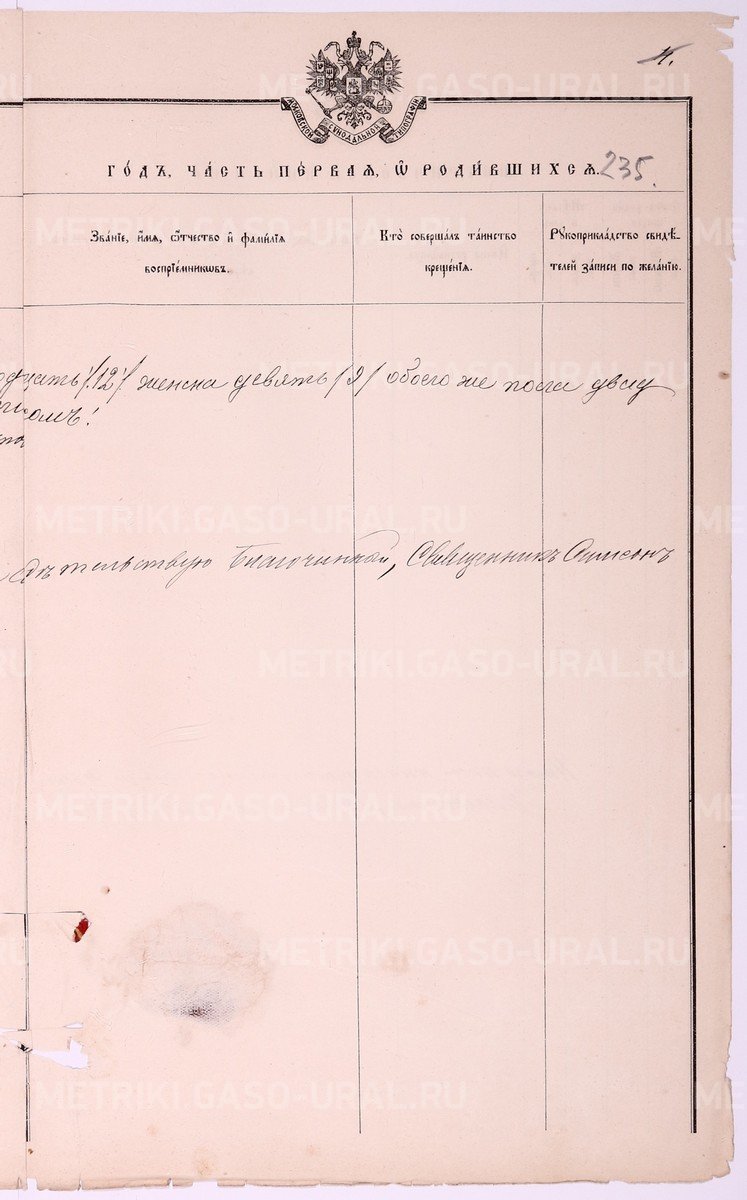 4.
МОСКОВСКОЙ СѴНОДАЛЬНОЙ ТИПОГРАФІИ
ГО́ДЪ, ЧА́СТЬ ПЕ́РВАЯ, Ѽ РОДИ́ВШИХСЯ. 235.
Зва́нїе, и҆́мѧ, ѻ҆́тчество и҆ фами́лїѧ
воспрїе́мникѡвъ.
Кто̀ соверша́лъ та́инство
креще́нїѧ.
Рꙋкоприкла́дство свидѣ́-
телей за́писи по жела́нїю.
/12/ женска девять /9/ обоего же пола двад
свидѣтельствую Благочинный, Священникъ Симеонъ
METRIKI.GASO-URAL.RU